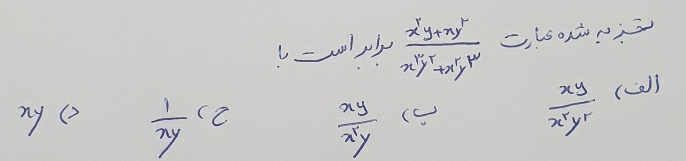 تجزیه شده عبارت (x²y+xy²)/(x³y²+x²y³) برابر است با
الف) xy/x²y² ب) xy/x²y ج) 1/xy د) xy